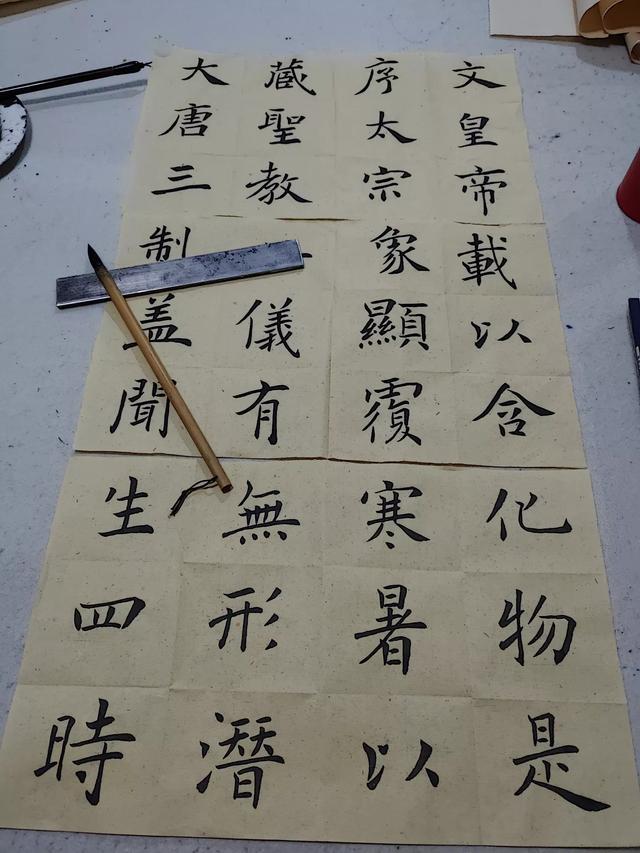 大唐三
藏聖教
序太宗
文皇帝
制盖聞
儀有
象顯覆
載以含
生四時
無形潛
寒暑以
化物是